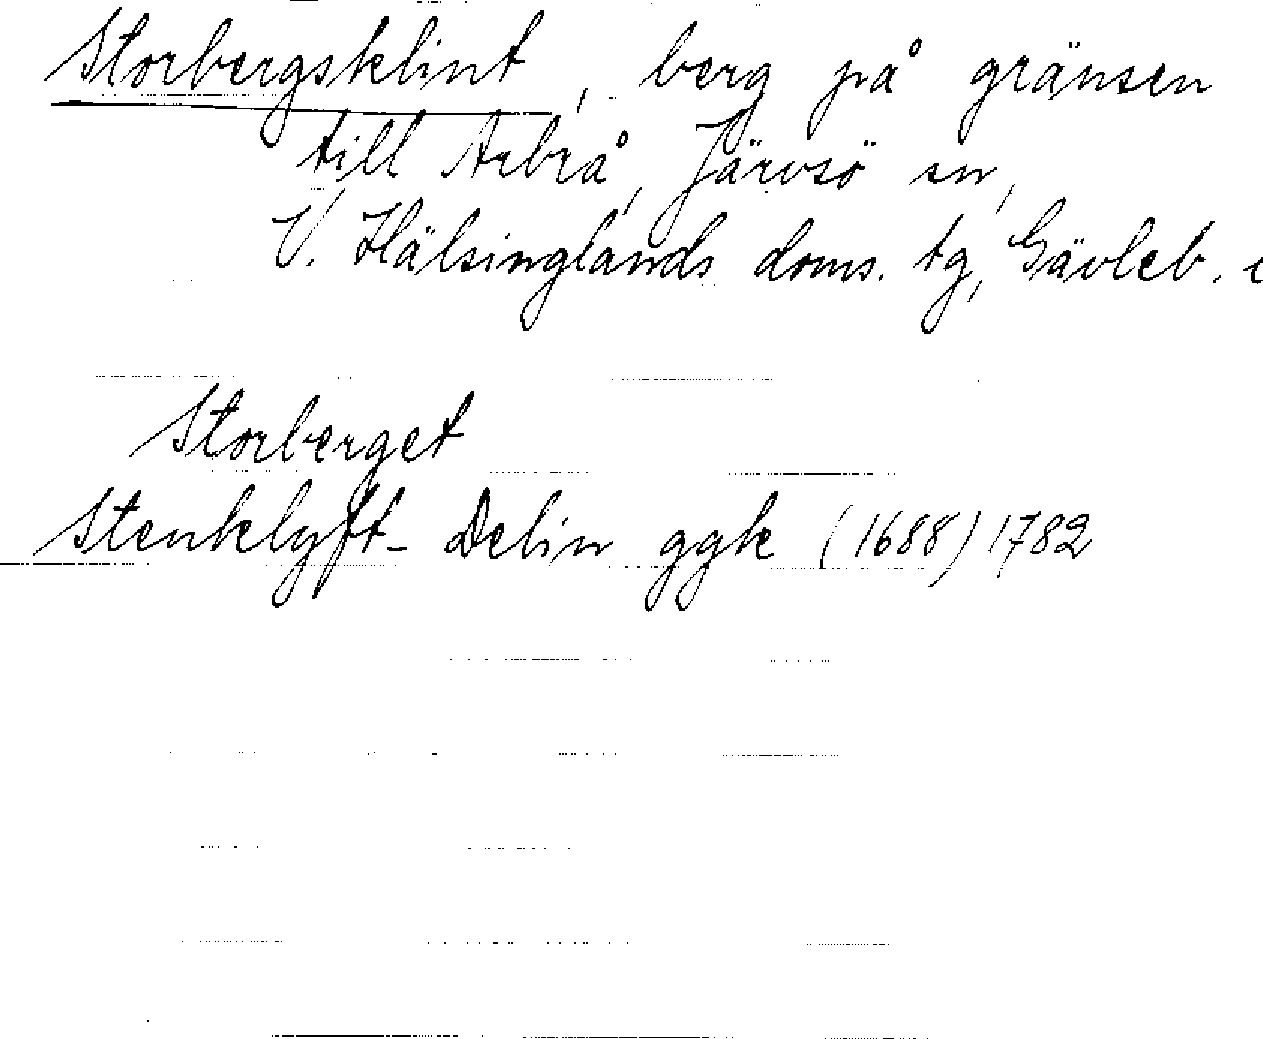 Storbergsklint, berg på gränsen
till Arbrå, Järvsö sn,
V. Hälsinglands doms. tg, Gävleb.
Storberget
Stenklyft- Delin ggk (1688) 1782